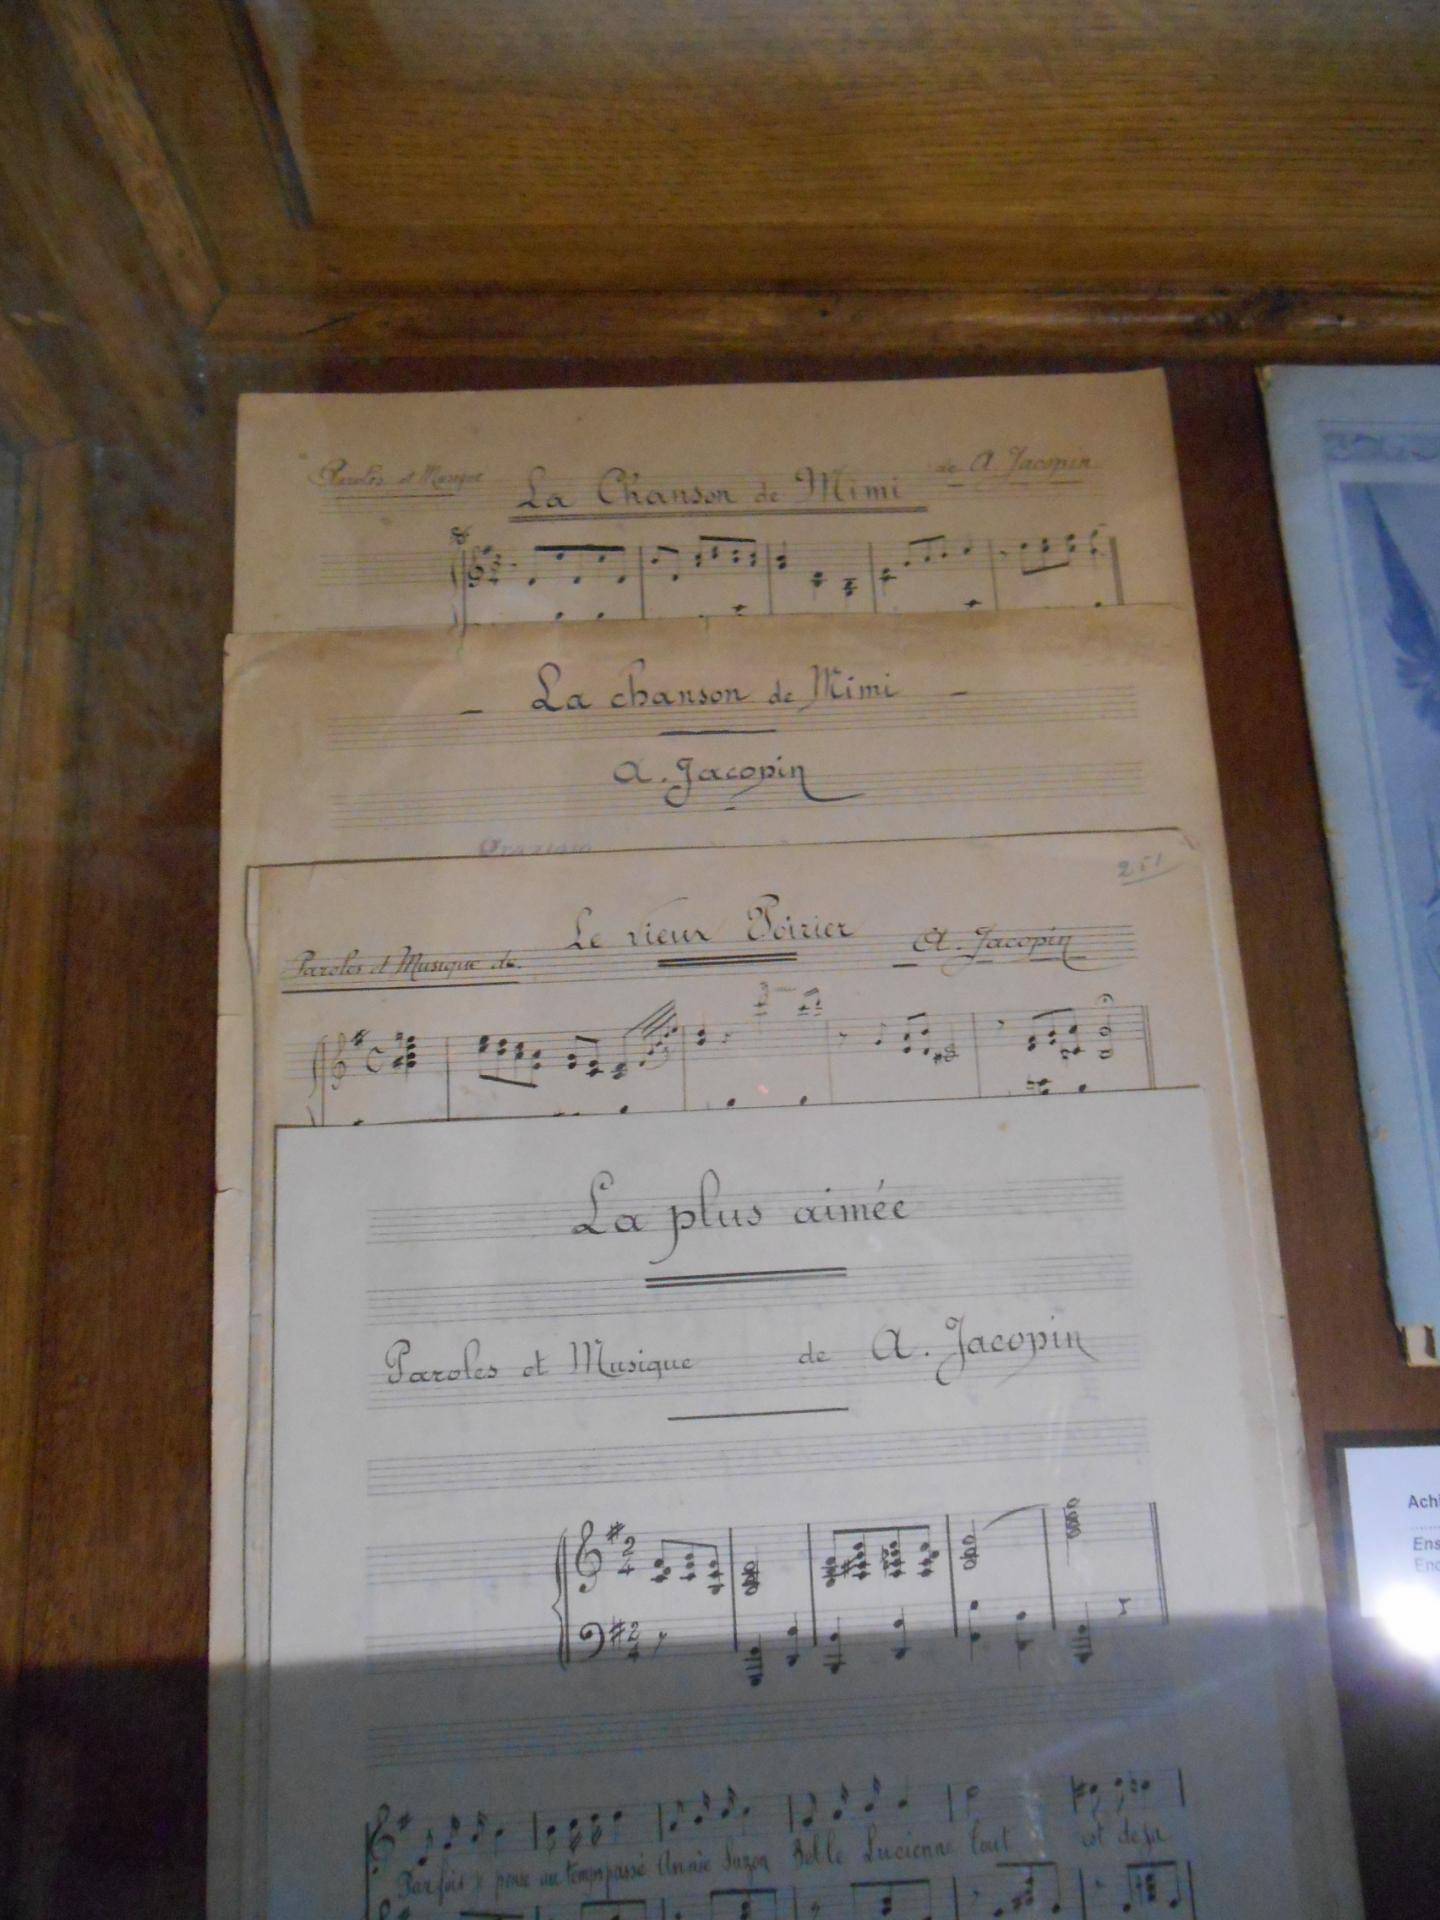 Paroles et Musique La Chanson de Mimi de A. Jacopin
- La chanson de Mimi -
A. Jacopin
Le vieux Poirier
Paroles et Musique de A. Jacopin
La plus aimée
Paroles et Musique de A. Jacopin
2
4
2
4
Parfois je pense au temps passé Annie Suzon Belle Lucienne tout est déjà
Achi
Ens
Enc